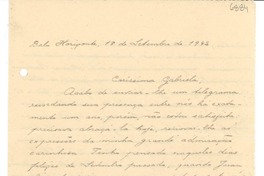 6884
Belo Horizonte, 18 de Setembro de 1944
Caríssima Gabriela,
Acabo de enviar-lhe um telegrama
recordando sua presença entre nós há exata-
mente um ano, porém, não sem satisfeita,
procurava abraçá-la hoje, renovar-lhe as
expressões de minha grande admiração
carinhosa. Tenho pensado naqueles dias
felizes de Setembro passado, quando Juan